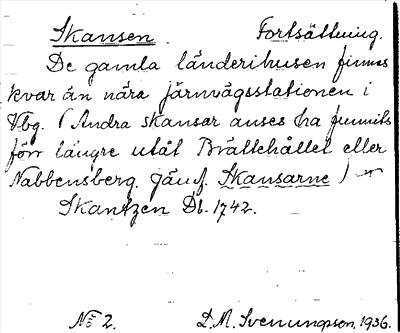 Skansen. Fortsättning.
De gamla länderihusen finnes
kvar än nära järnvägsstationen i
Vbg. (Andra skansar anses ha funnits
förr längre utåt Brättehållet eller
Nabbensberg. Jämf. Skansarne)
Skantzen Db. 1742.
No 2. D.M. Svenungson, 1936.